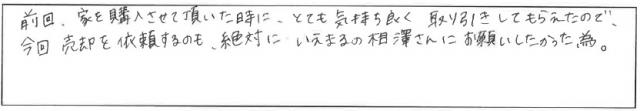 前回、家を購入させて頂いた時に、とても気持ち良く取り引きしてもらえたので、
今回売却を依頼するのも、絶対にいえまるの相澤さんにお願いしたかった為。